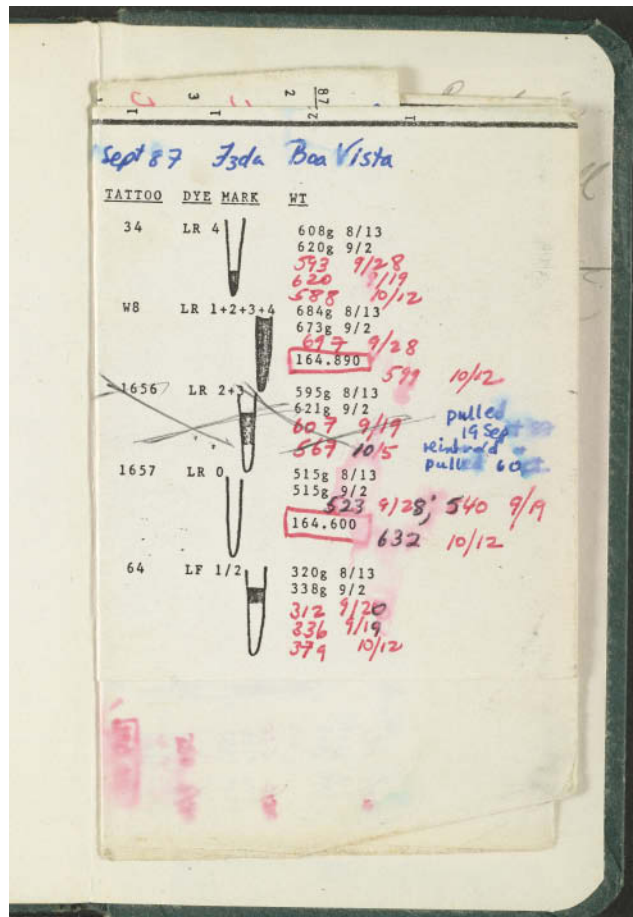 2 87
3
1 1 2 1
Sept 87 Fzda Boa Vista
TATTOO DYE MARK WT
34 LR 4 608g 8/13
620g 9/2
593 9/28
620 9/19
588 10/12
W8 LR 1+2+3+4 684g 8/13
673g 9/2
697 9/28
164.890
599 10/12
1656 LR 2+3 595g 8/13
621g 9/2
607 9/19
567 10/5
pulled
19 Sept
pulled 6 Oct
1657 LR 0 515g 8/13
515g 9/2
523 9/28; 540 9/19
164.600
632 10/12
64 LF 1/2 320g 8/13
338g 9/2
312 9/20
336 9/19
379 10/12